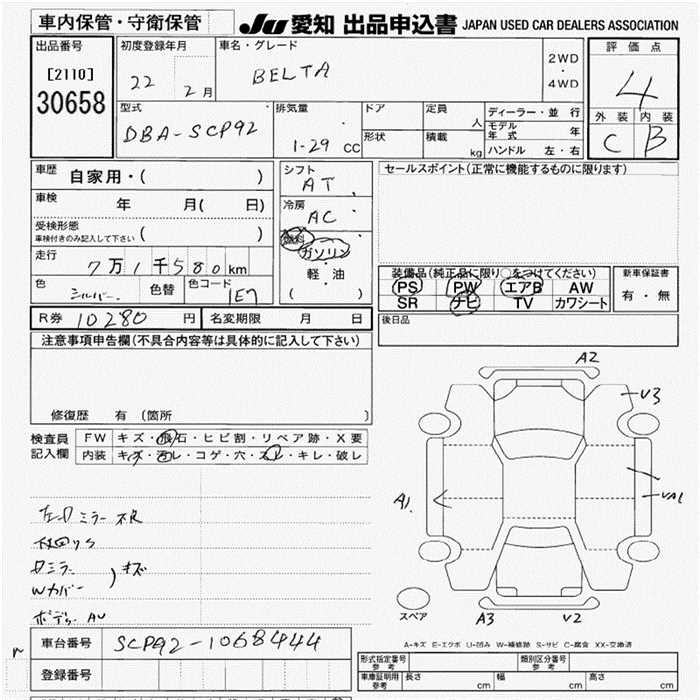 車内保管・守衛保管
JU 愛知 出品申込書 JAPAN USED CAR DEALERS ASSOCIATION
出品番号
[2110]
30658
初度登録年月
22 2月
車名・グレード
BELTA
2WD
・
4WD
評価点
4
外装 内装
C B
型式
DBA-SCP92
排気量
1-29 CC
ドア
形状
定員
人
積載
kg
ディーラー・並行
モデル年式 年
ハンドル 左・右
車歴
自家用・( )
車検
年 月( 日)
受検形態
車検付きのみ記入して下さい ( )
走行
7万1千580km
色
シルバー
色替
色コード
1E7
シフト
AT
冷房
AC
燃料
ガソリン
・
軽・油
( )
セールスポイント(正常に機能するものに限ります)
装備品(純正品に限り○をつけてください)
PS PW エアB AW
SR ナビ TV カワシート
新車保証書
有・無
R券 10280 円 名変期限 月 日
後日品
注意事項申告欄(不具合内容等は具体的に記入して下さい)
修復歴 有 (箇所 )
検査員
記入欄
FW キズ・飛石・ヒビ割・リペア跡・X要
内装 キズ・汚レ・コゲ・穴・スレ・キレ・破レ
ミラー 不良
ミラー
Wカバー
キズ
A2
V3
A1
A3
V2
スペア
A-キズ E-エクボ U-凹み W-補修跡 S-サビ C-腐食 XX-交換済
車台番号 SCP92-1068444
登録番号
形式指定番号
参考
類別区分番号
参考
車庫証明用
参考
長さ cm 幅 cm 高さ cm